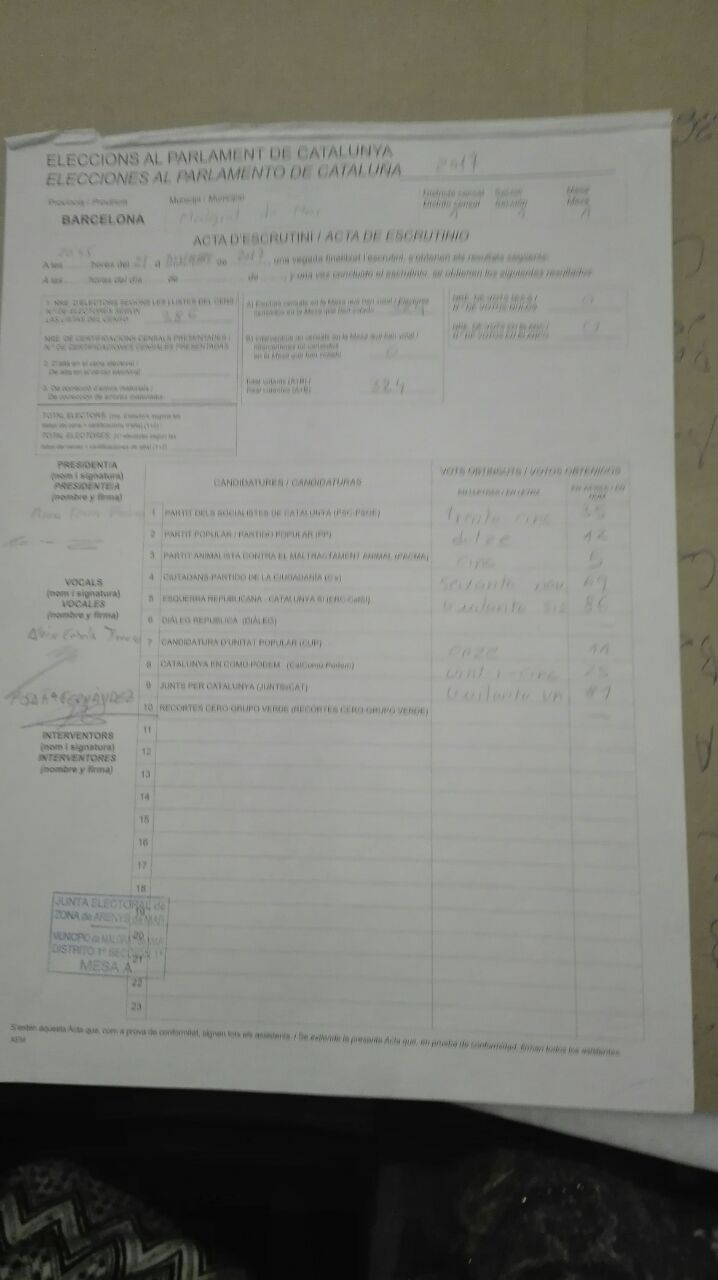 ELECCIONS AL PARLAMENT DE CATALUNYA
ELECCIONES AL PARLAMENTO DE CATALUÑA 2017
Província / Provincia
Municipi / Municipio
Districte censal Secció Mesa
Distrito censal Sección Mesa
BARCELONA
Malgrat de Mar
ACTA D'ESCRUTINI / ACTA DE ESCRUTINIO
A les hores del 21 de 2017, una vegada finalitzat l'escrutini, s'obtenen els resultats següents:
A las horas del día de de , y una vez concluido el escrutinio, se obtienen los siguientes resultados:
1. NRE. D'ELECTORS SEGONS LES LLISTES DEL CENS
Nº DE ELECTORES SEGÚN
LAS LISTAS DEL CENSO
NRE. DE CERTIFICACIONS CENSALS PRESENTADES /
Nº DE CERTIFICACIONES CENSALES PRESENTADAS
2. D'alta en el cens electoral /
De alta en el censo electoral
3. De correcció d'errors materials /
De corrección de errores materiales
TOTAL ELECTORS
TOTAL ELECTORES
en la Mesa que han votado 0
Total votants (A+B) /
Total votantes (A+B) 324
NRE. DE VOTS NULS /
Nº DE VOTOS NULOS 0
NRE. DE VOTS EN BLANC /
Nº DE VOTOS EN BLANCO 0
PRESIDENT/A
(nom i signatura)
PRESIDENTE/A
(nombre y firma)
VOCALS
(nom i signatura)
VOCALES
(nombre y firma)
FERNÁNDEZ
INTERVENTORS
(nom i signatura)
INTERVENTORES
(nombre y firma)
CANDIDATURES / CANDIDATURAS
VOTS OBTINGUTS / VOTOS OBTENIDOS
EN LLETRES / EN LETRA
1 PARTIT DELS SOCIALISTES DE CATALUNYA (PSC-PSOE) trenta cinc 35
2 PARTIT POPULAR / PARTIDO POPULAR (PP) dotze 12
3 PARTIT ANIMALISTA CONTRA EL MALTRACTAMENT ANIMAL (PACMA) cinc 5
4 CIUTADANS-PARTIDO DE LA CIUDADANÍA (C's) seixanta nou 69
5 ESQUERRA REPUBLICANA - CATALUNYA SÍ (ERC-CatSí) vuitanta sis 86
6 DIÀLEG REPUBLICÀ (DIÀLEG) —
7 CANDIDATURA D'UNITAT POPULAR (CUP) onze 11
8 CATALUNYA EN COMÚ-PODEM (CatComú-Podem) vint i cinc 25
9 JUNTS PER CATALUNYA (JUNTSxCAT) vuitanta un 81
10 RECORTES CERO-GRUPO VERDE (RECORTES CERO-GRUPO VERDE) —
11
12
13
14
15
16
17
18
19
20
21
22
23
JUNTA ELECTORAL de
ZONA de ARENYS de MAR
MUNICIPIO de MALGRAT de MAR
DISTRITO 1º SECCIÓN 1ª
MESA A
S'estén aquesta Acta que, com a prova de conformitat, signen tots els assistents. / Se extiende la presente Acta que, en prueba de conformidad, firman todos los asistentes.